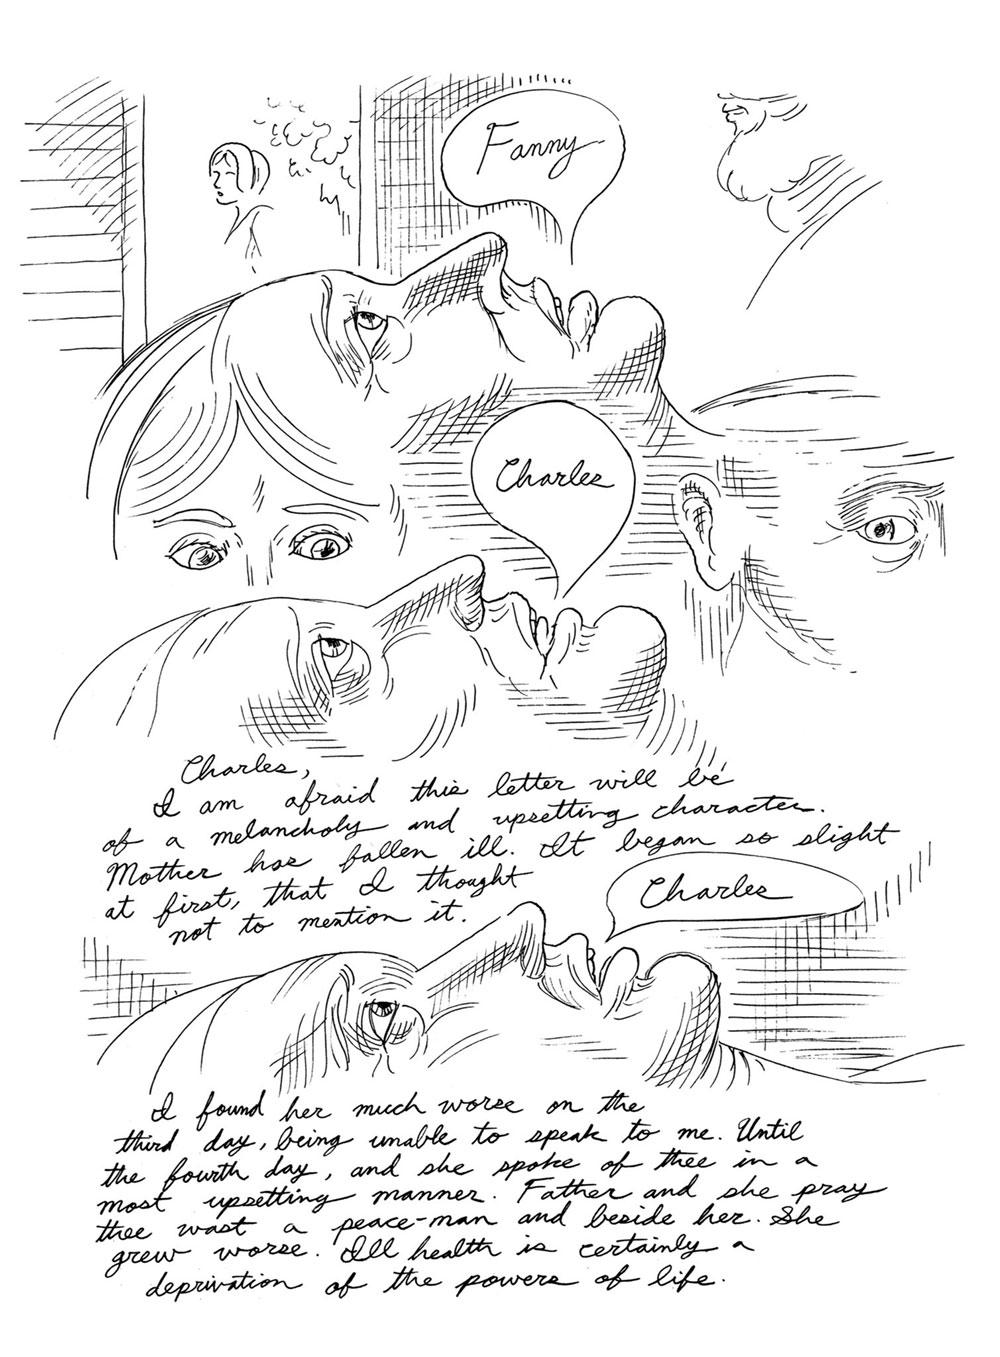 Fanny
Charles
Charles,
I am afraid this letter will be
of a melancholy and upsetting character.
Mother has fallen ill. It began so slight
at first, that I thought
not to mention it.
Charles
I found her much worse on the
third day, being unable to speak to me. Until
the fourth day, and she spoke of thee in a
most upsetting manner. Father and she pray
thee wast a peace-man and beside her. She
grew worse. Ill health is certainly a
deprivation of the powers of life.